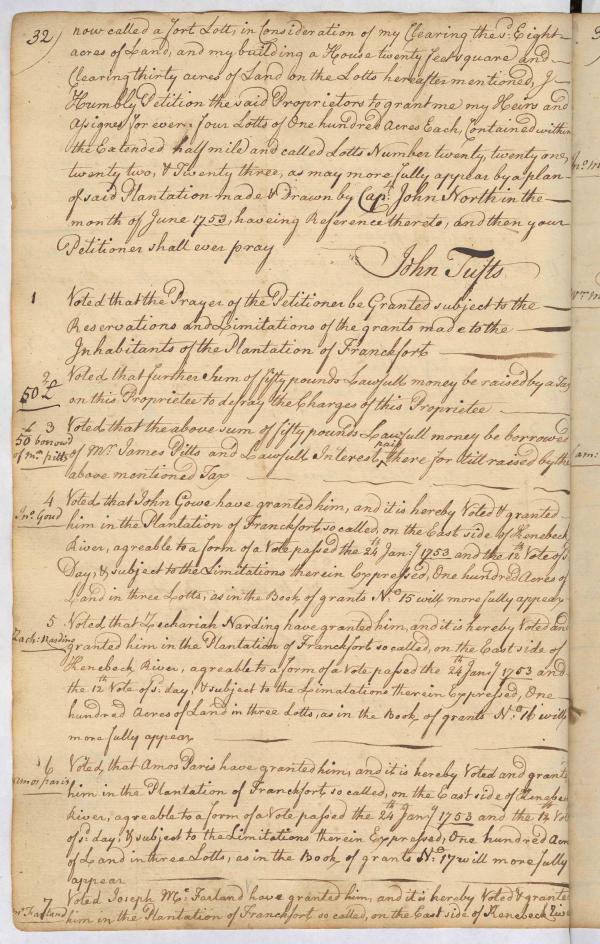 32
now called a Fort Lott, in Consideration of my Clearing the sd: Eight
acres of Land, and my building a House twenty feet square and
Clearing thirty acres of Land on the Lotts hereafter mentioned, I
Humbly Petition the said Proprietors to grant me my Heirs and
Assignes for ever. four Lotts of One hundred Acres Each, Contained within
the Extended half mile and called Lotts Number twenty, twenty one,
twenty two, & Twenty three, as may more fully appear by a plan
of said Plantation made & Drawn by Capt: John North in the
month of June 1753, haveing Reference thereto, and then your
Petitioner shall ever pray
John Tufts
1 Voted that the Prayer of the Petitioner be Granted subject to the
Reservations and Limitations of the grants made to the
Inhabitants of the Plantation of Franckfort
2 Voted that further Sum of fifty pounds Lawfull money be raised by a Tax
50£ on this Proprietee to defray the Charges of this Proprietee
£ 3 Voted that the above sum of fifty pounds Lawfull money be borrowed
50 borrowd of Mr James Pitts and Lawfull Interest paid there for till raised by the
of mr. pitts above mantioned Tax
4 Voted that John Gowe have granted him, and it is hereby Voted & granted
Jno. Goud him in the Plantation of Franckfort so called, on the East side of Kenebeck
River, agreable to a form of a Vote passed the 24th Jany: 1753 and the 12th Vote of sd:
Day, & subject to the Limitations therein Expressed, One hundred Acres of
Land in three Lotts, as in the Book of grants No. 15 will more fully appear
5 Voted that Zechariah Narding have granted him, and it is hereby Voted and
Zach: Narding granted him in the Plantation of Franckfort so called, on the East side of
Kenebeck River, agreable to a form of a Vote passed the 24th Jany: 1753 and
the 12th Vote of sd: day, & subject to the Limatations therein Expressed, One
hundred Acres of Land in three Lotts, as in the Book of grants No. 16 will
more fully appear
6 Voted, that Amos Paris have granted him, and it is hereby Voted and grante
Amos paris him in the Plantation of Franckfort so called, on the East side of Kenebec
River, agreable to a form of a Vote passed the 24th Jany: 1753 and the 12th Vot
of sd: day, & subject to the Limitations therein Expressed, One hundred Acre
of Land in three Lotts, as in the Book of grants No. 17 will more fully
appear
7 Voted Joseph Mc. Farland have granted him, and it is hereby Voted & grante
Farland him in the Plantation of Franckfort so called, on the East side of Kenebeck Rive